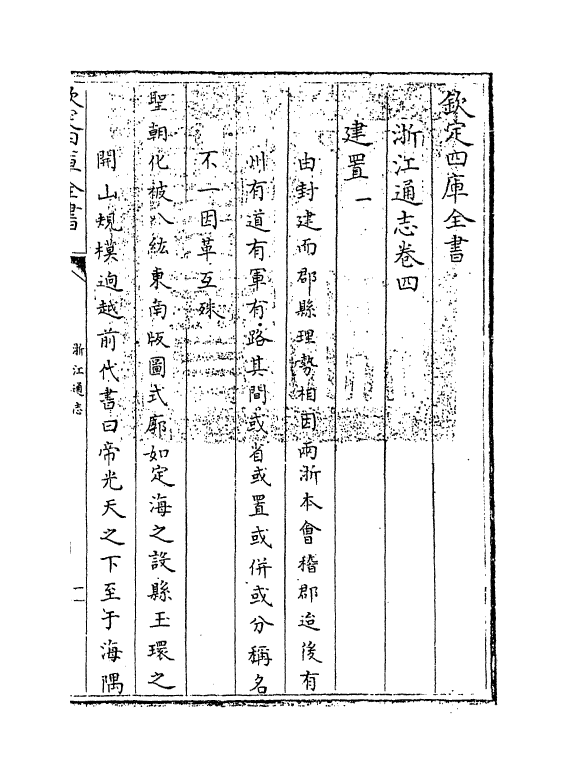 欽定四庫全書
浙江通志卷四
建置一
由封建而郡縣理勢相因兩浙本會稽郡迨後有
州有道有軍有路其間或省或置或併或分稱名
不一因革互殊
聖朝化被八紘東南版圖式廓如定海之設縣玉環之
開山規模逈越前代書曰帝光天之下至于海隅
欽定四庫全書
浙江通志
一